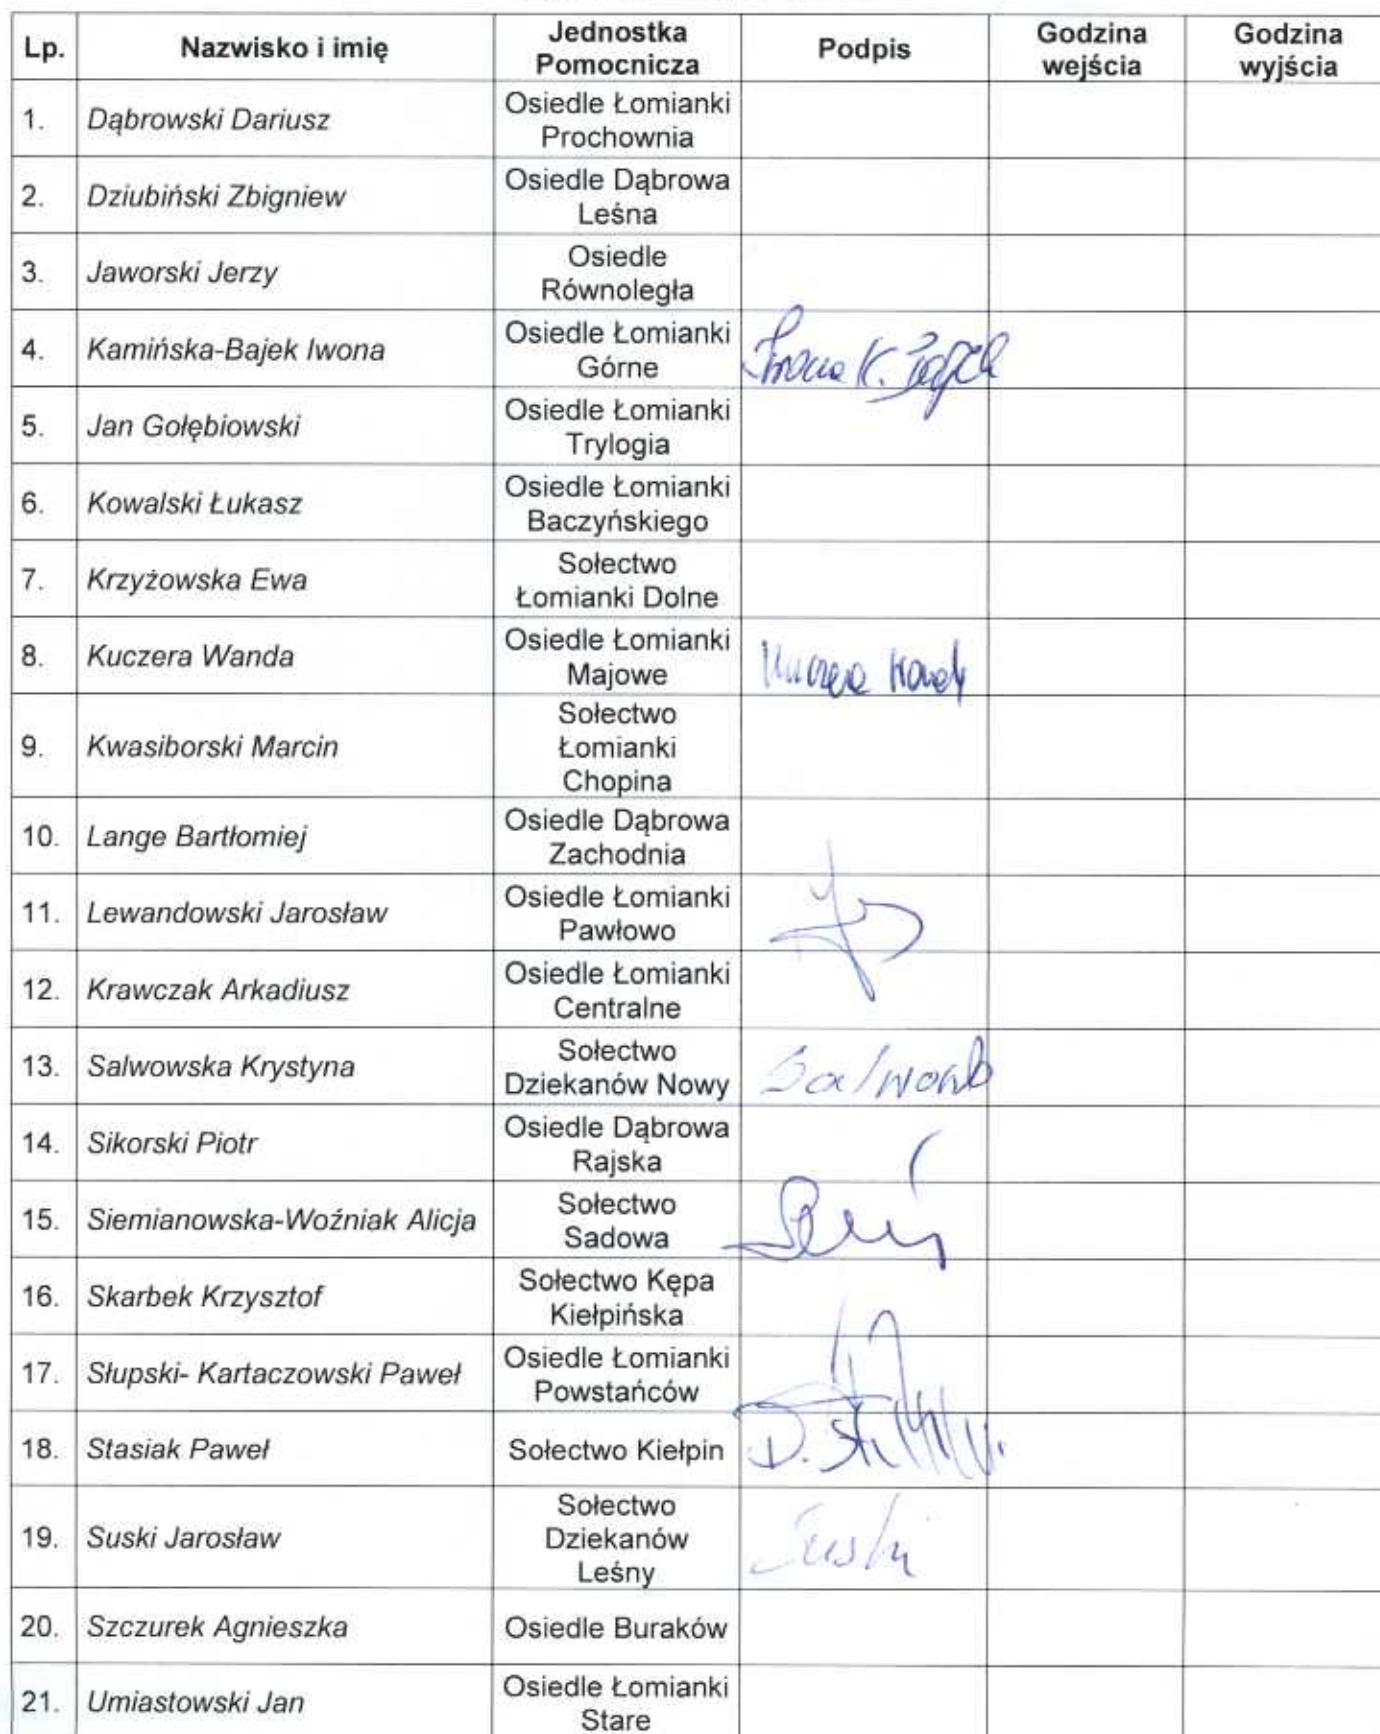 Lp. Nazwisko i imię Jednostka Pomocnicza Podpis Godzina wejścia Godzina wyjścia
1. Dąbrowski Dariusz Osiedle Łomianki Prochownia
2. Dziubiński Zbigniew Osiedle Dąbrowa Leśna
3. Jaworski Jerzy Osiedle Równoległa
4. Kamińska-Bajek Iwona Osiedle Łomianki Górne Iwona K. Bajek
5. Jan Gołębiowski Osiedle Łomianki Trylogia
6. Kowalski Łukasz Osiedle Łomianki Baczyńskiego
7. Krzyżowska Ewa Sołectwo Łomianki Dolne
8. Kuczera Wanda Osiedle Łomianki Majowe Kuczera
9. Kwasiborski Marcin Sołectwo Łomianki Chopina
10. Lange Bartłomiej Osiedle Dąbrowa Zachodnia
11. Lewandowski Jarosław Osiedle Łomianki Pawłowo
12. Krawczak Arkadiusz Osiedle Łomianki Centralne
13. Salwowska Krystyna Sołectwo Dziekanów Nowy
14. Sikorski Piotr Osiedle Dąbrowa Rajska
15. Siemianowska-Woźniak Alicja Sołectwo Sadowa
16. Skarbek Krzysztof Sołectwo Kępa Kiełpińska
17. Słupski- Kartaczowski Paweł Osiedle Łomianki Powstańców
18. Stasiak Paweł Sołectwo Kiełpin
19. Suski Jarosław Sołectwo Dziekanów Leśny Suski
20. Szczurek Agnieszka Osiedle Buraków
21. Umiastowski Jan Osiedle Łomianki Stare